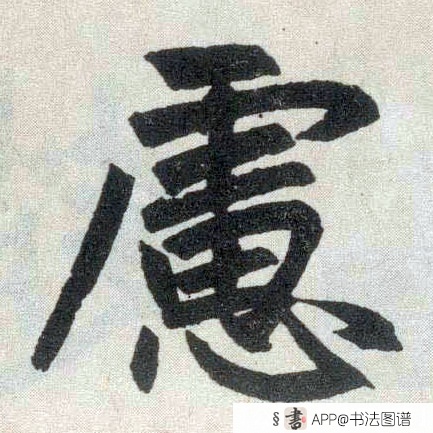 慮
§ 書 APP@书法图谱